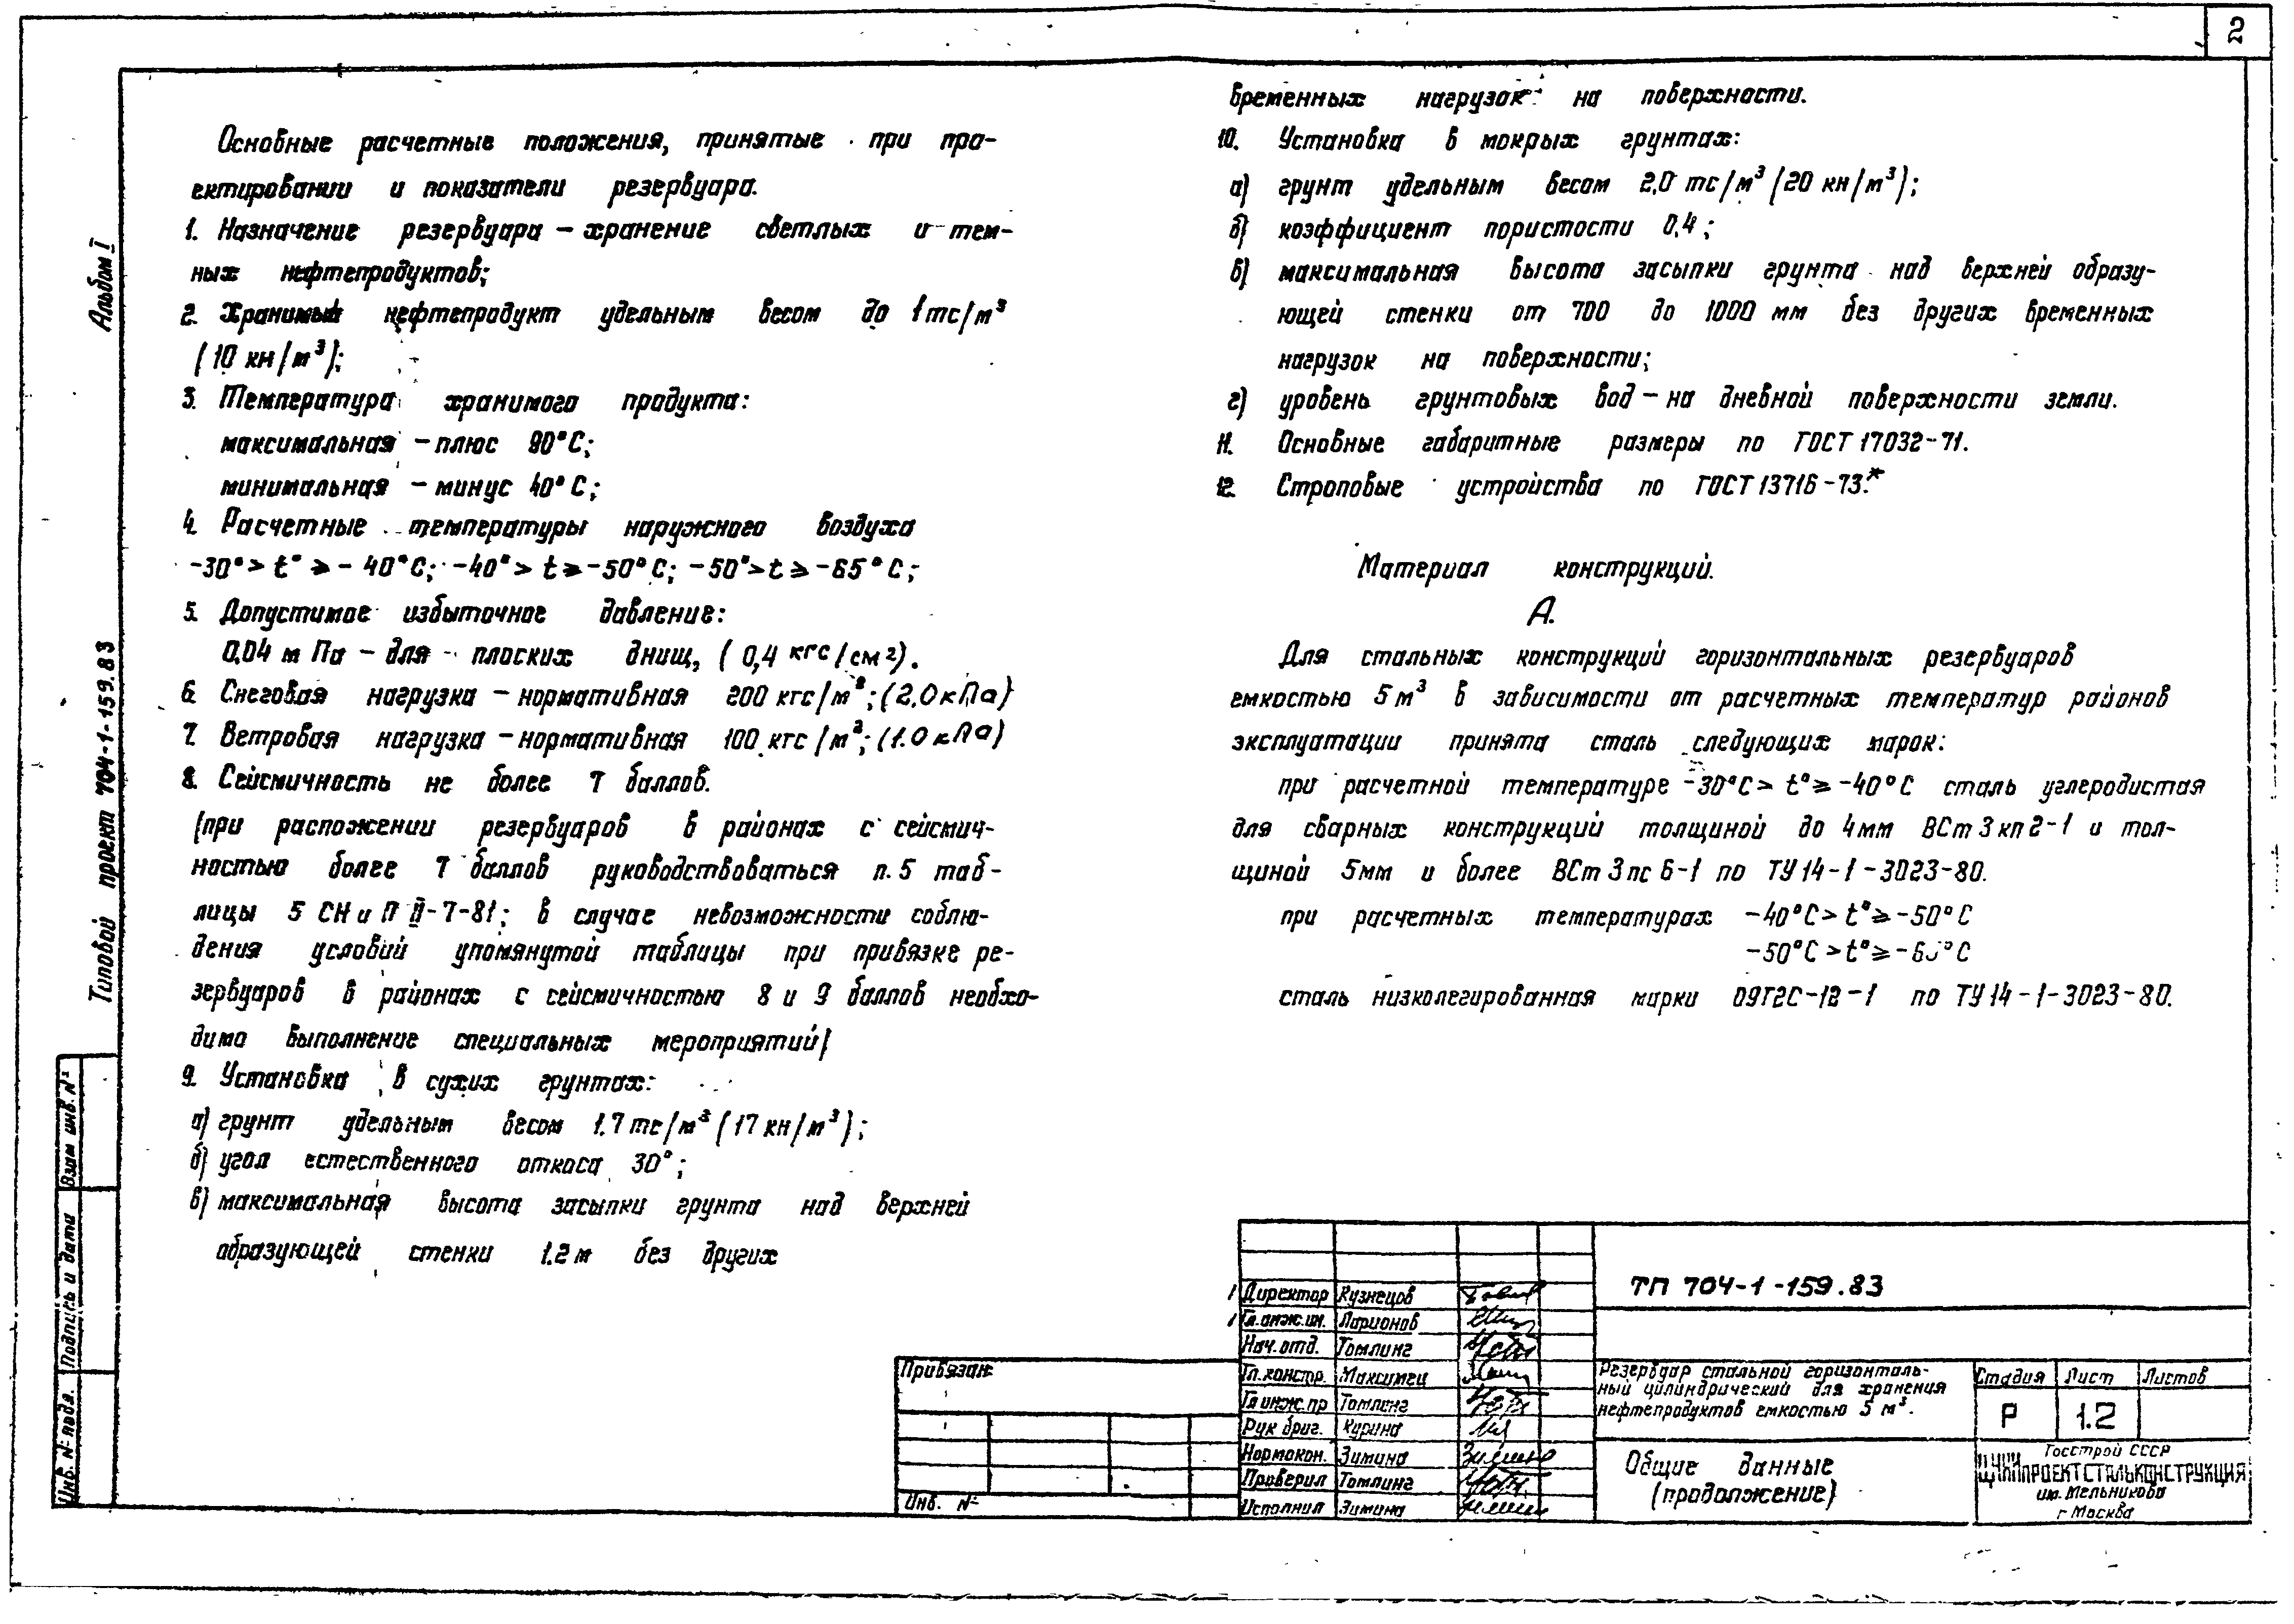 2
Альбом I
Типовой проект 704-1-159.83
Взам инв. №
Подпись и дата
Инв. № подл.
Основные расчетные положения, принятые при про-
ектировании и показатели резервуара.
1. Назначение резервуара – хранение светлых и тем-
ных нефтепродуктов;
2. Хранимый нефтепродукт удельным весом до 1 тс/м³
(10 кн/м³);
3. Температура хранимого продукта:
максимальная – плюс 90°С;
минимальная – минус 40°С;
4. Расчетные температуры наружного воздуха
-30°> t° ⩾ - 40°С; -40°> t ⩾ -50°С; -50°> t ⩾ -65°С;
5. Допустимое избыточное давление:
0,04 мПа – для плоских днищ, (0,4 кгс/см²).
6. Снеговая нагрузка – нормативная 200 кгс/м²; (2.0 кПа)
7. Ветровая нагрузка – нормативная 100 кгс/м²; (1.0 кПа)
8. Сейсмичность не более 7 баллов.
(при распожении резервуаров в районах с сейсмич-
ностью более 7 баллов руководствоваться п. 5 таб-
лицы 5 СНиП II-7-81; в случае невозможности соблю-
дения условий упомянутой таблицы при привязке ре-
зервуаров в районах с сейсмичностью 8 и 9 баллов необхо-
димо выполнение специальных мероприятий)
9. Установка в сухих грунтах:
а) грунт удельным весом 1.7 тс/м³ (17 кн/м³);
б) угол естественного откоса 30°;
в) максимальная высота засыпки грунта над верхней
образующей стенки 1.2 м без других
временных нагрузок на поверхности.
10. Установка в мокрых грунтах:
а) грунт удельным весом 2,0 тс/м³ (20 кн/м³);
б) коэффициент пористости 0,4;
в) максимальная высота засыпки грунта над верхней образу-
ющей стенки от 700 до 1000 мм без других временных
нагрузок на поверхности;
г) уровень грунтовых вод – на дневной поверхности земли.
11. Основные габаритные размеры по ГОСТ 17032-71.
12. Строповые устройства по ГОСТ 13716-73.*
Материал конструкций.
А.
Для стальных конструкций горизонтальных резервуаров
емкостью 5 м³ в зависимости от расчетных температур районов
эксплуатации принята сталь следующих марок:
при расчетной температуре -30°С > t° ⩾ -40°С сталь углеродистая
для сварных конструкций толщиной до 4мм ВСт3кп2-1 и тол-
щиной 5мм и более ВСт3пс6-1 по ТУ14-1-3023-80.
при расчетных температурах -40°С > t° ⩾ -50°С
-50°С > t° ⩾ -65°С
сталь низколегированная марки 09Г2С-12-1 по ТУ14-1-3023-80.
Привязан:
Инв. №
Директор Кузнецов
Гл.инж.ин. Ларионов
Нач. отд. Томлинг
Гл.констр. Максимец
Гл инж.пр Томлинг
Рук бриг. Курина
Нормокон. Зимина
Проверил Томлинг
Исполнил Зимина
ТП 704-1-159.83
Резервуар стальной горизонталь-
ный цилиндрический для хранения
нефтепродуктов емкостью 5 м³.
Стадия Лист Листов
Р 1.2
Общие данные
(продолжение)
Госстрой СССР
ЦНИИПРОЕКТСТАЛЬКОНСТРУКЦИЯ
им. Мельникова
г Москва